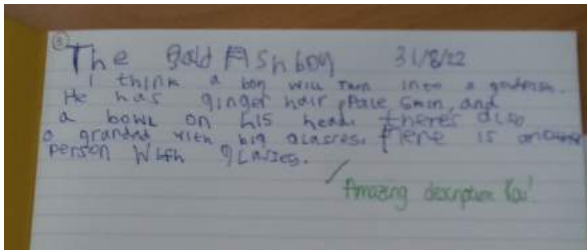 The Gold FIshboy 31/8/22
I think a boy will turn into a goldfish.
He has ginger hair, Pale skin, and
a bowl on his head. theres also
a grandad with big glasses. There is another
person with glasses.
Amazing description Kai!